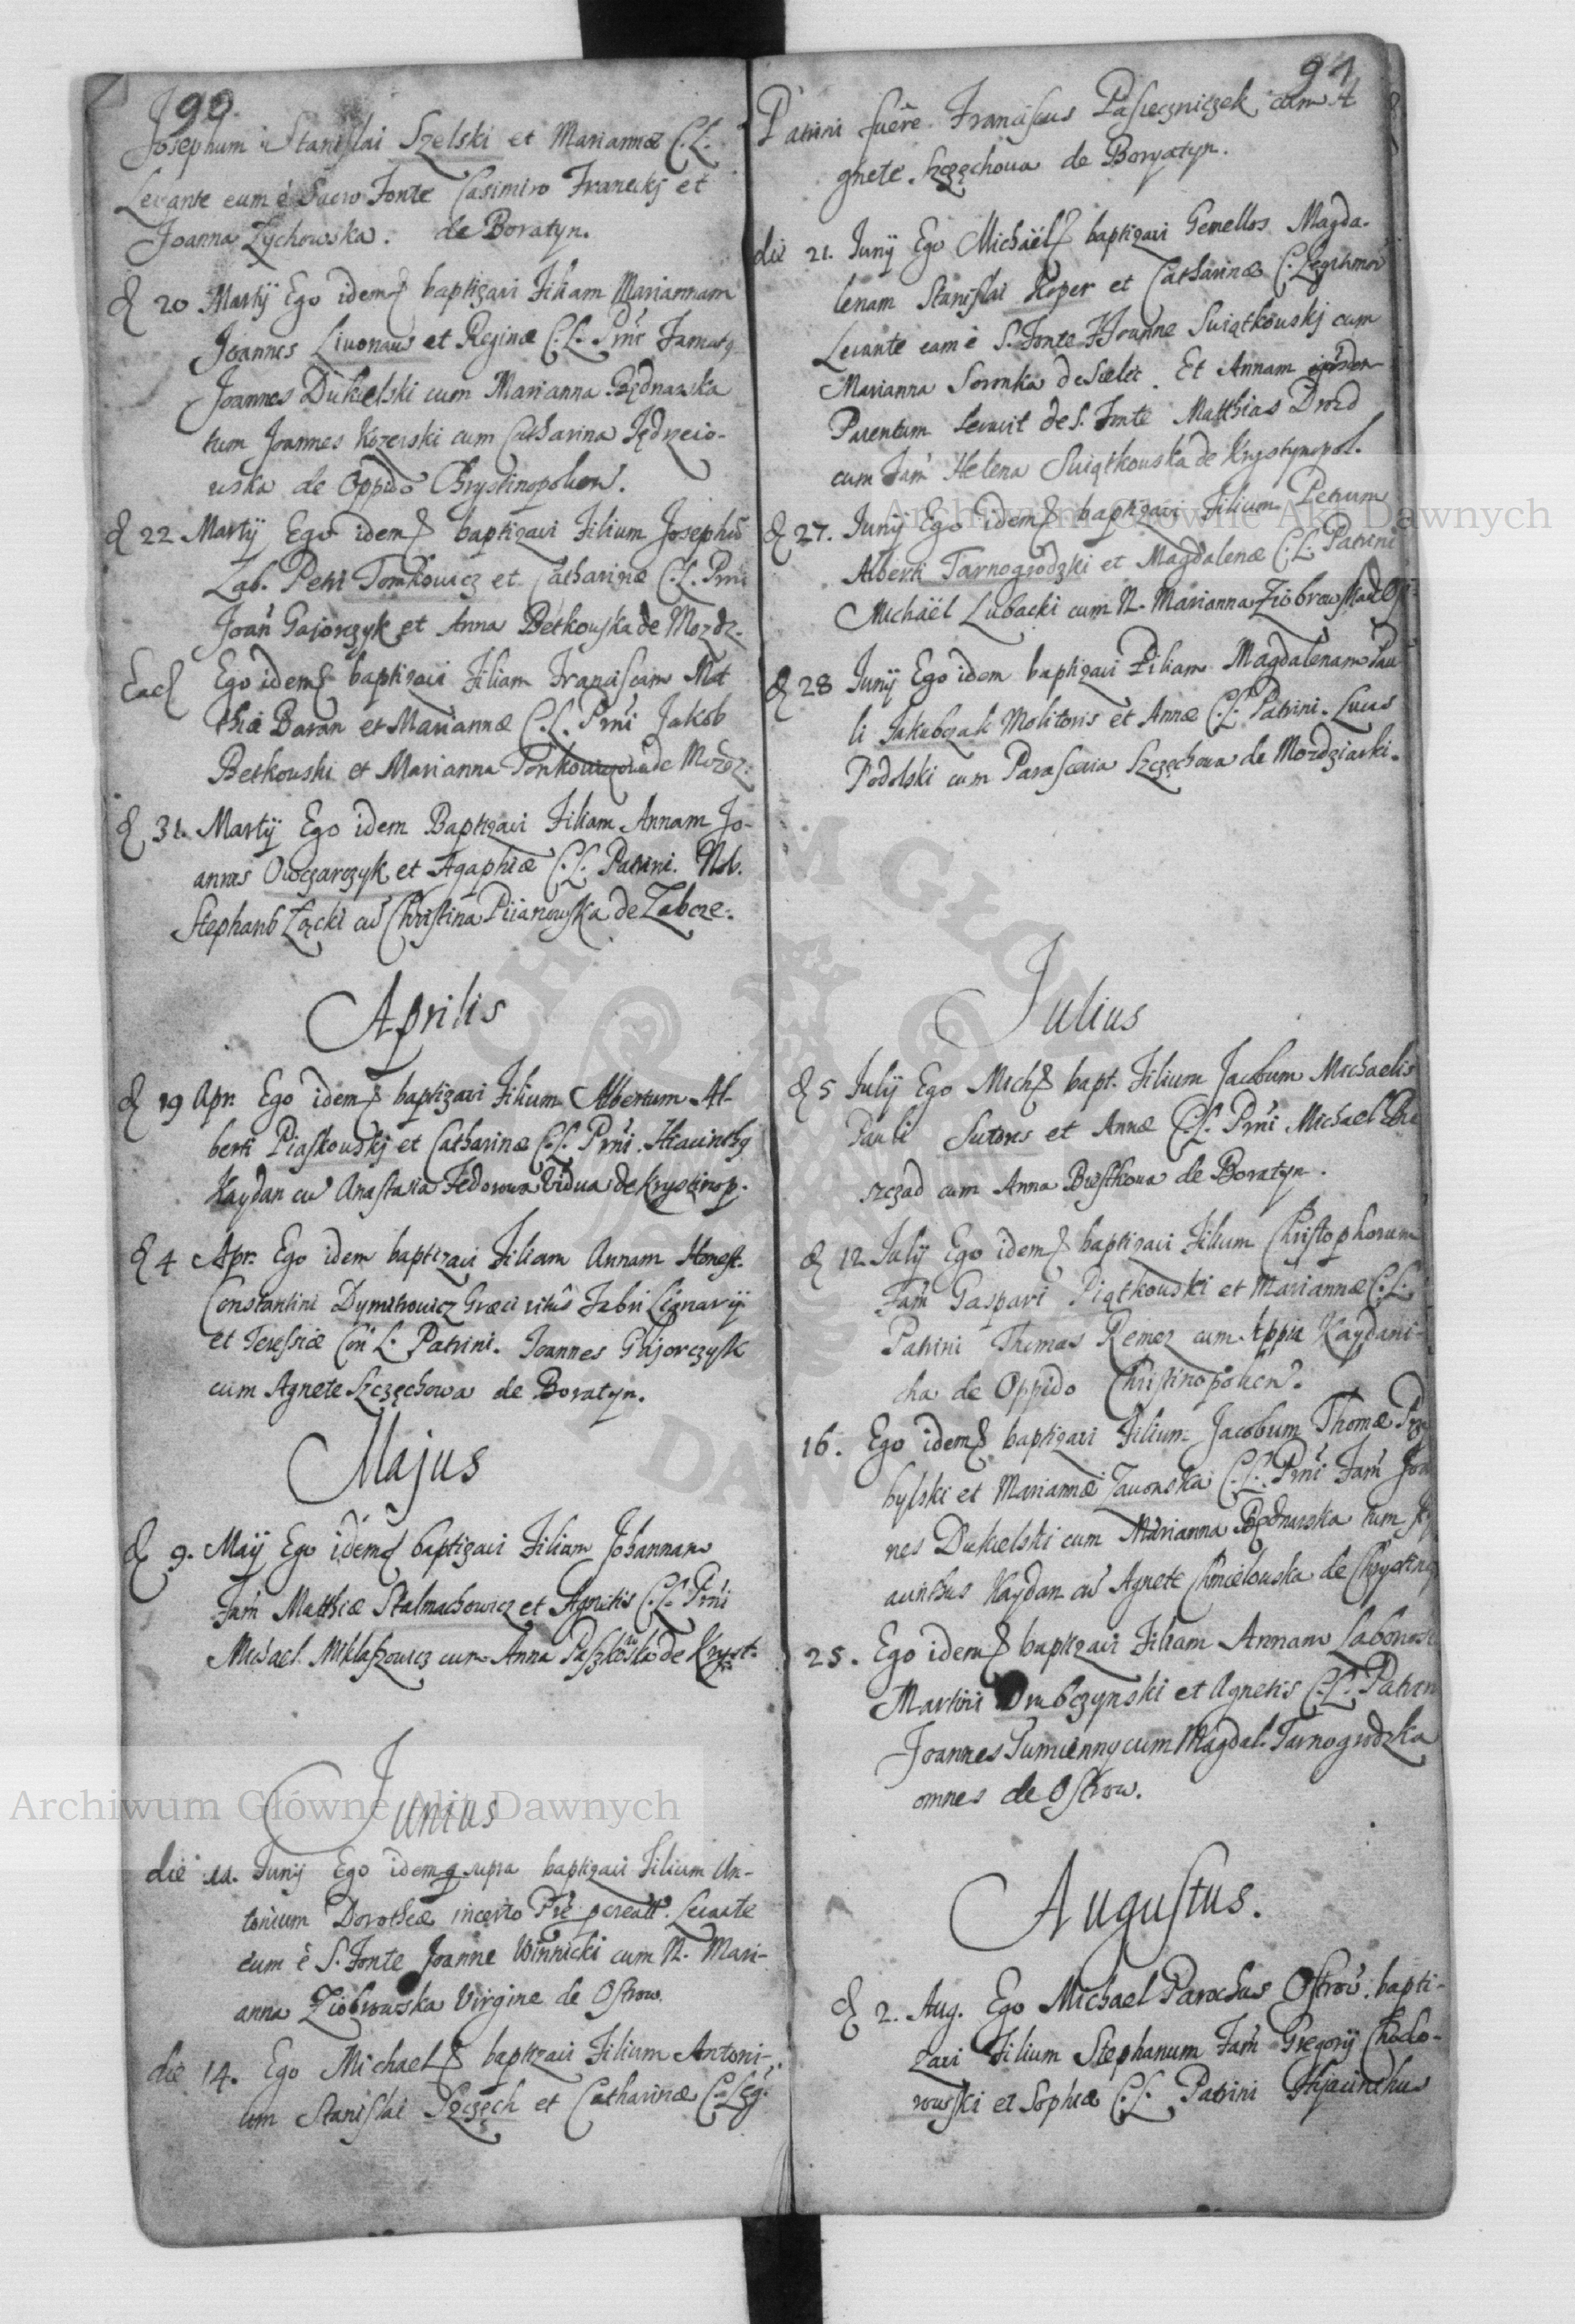 90.
Josephum Stanislai Szelski et Mariannæ C.L.
Levante eum è Sacro Fonte Casimiro Franckj et
Joanna Zychowska. de Boratyn.
d 20 Martij Ego idem baptizavi Filiam Mariannam
Joannes Livonaus et Reginæ C.L. Prni Famatg
Joannes Dukielski cum Marianna Będnarska
tum Joannes Kozerski cum Catharina Jędrzeio-
wska de Oppido Chrystinopolien.
d 22 Martij Ego idem baptizavi Filium Josephū
Lab. Petri Tomkowicz et Catharinæ C.L. Prni
Joañ Gajorczyk et Anna Betkowska de Mozdz.
Ead Ego idem baptizavi Filiam Franciscam Mat
thiæ Baran et Mariannæ C.L. Prni Jakob
Betkowski et Marianna Tonkowiczowa de Mozdz:
d 31. Martij Ego idem Baptizavi Filiam Annam Jo-
annis Owczarczyk et Agaphiæ C.L. Patrini. Nob.
Stephanus Łącki cū Christina Piianowska de Zabcze.
Aprilis
d 19 Apr. Ego idem baptizavi Filium Albertum Al-
berti Piaskowskj et Catharinæ C.L. Prni. Hiacinthg
Kaydan cū Anastasia Fedorowa Vidua de Krystinop.
d 4 Apr. Ego idem baptizavi Filiam Annam Honest.
Constantini Dymitrowicz Græci ritûs Fabri Lignarij
et Teressiæ Con L. Patrini. Joannes Gajorczyk
cum Agnete Szczęchowa de Boratyn.
Majus
d 9. Maij Ego idem baptizavi Filium Johannam
Fam Matthiæ Stalmachowicz et Agnetis C.L. Prni
Michael Miklaszowicz cum Anna Paszkowska de Kryst.
Junius
die 11. Junij Ego idem q supra baptizavi Filium An-
tonium Dorotheæ incerto Pre pcreatt. Levante
eum è S. Fonte Joanne Winnicki cum N. Mari-
anna Ziobrowska Virgine de Ostrow.
die 14. Ego Michael baptizavi Filium Antoni-
um Stanislai Szczęch et Catharinæ C. Leg.
91
Patrini fuêre Franciscus Pasieczniczek cum A
gnete Szczęchowa de Boryatyn.
die 21. Junij Ego Michäel baptizavi Gemellos Magda-
lenam Stanislai Koper et Catharinæ C. Legitimor
Levante eam è S. Fonte Joanne Swiątkowskj cum
Marianna Soronka de Sielec. Et Annam eorden
Parentum levavit de S. Fonte Matthias Drozd
cum Fam Helena Swiątkowska de Krystynopol.
d 27. Junij Ego idem baptizavi Filium Petrum
Alberti Tarnogrodzki et Magdalenæ C.L. Patrini
Michäel Lubacki cum N. Marianna Ziobrowska de
d 28 Junij Ego idem baptizavi Filiam Magdalenam Pau
li Jakubczak Molitoris et Annæ C.L. Patrini. Lucas
Podolski cum Parascevia Szczęchowa de Mozdziarki.
Julius
d 5 Julij Ego Mich bapt. Filium Jacobum Michaelis
Pauli Sutoris et Annæ C.L. Prni Michael
szczad cum Anna Biestkowa de Boratyn.
d 12 Julij Ego idem baptizavi Filium Christophorum
Fam Gaspari Piątkowski et Mariannæ C.L.
Patrini Thomas Remez cum Appia Kaydani-
cha de Oppido Christinopolien.
16. Ego idem baptizavi Filium Jacobum Thomæ Prz
bylski et Mariannæ Zawonska C.L. Prni Fam Joa
nes Dukielski cum Marianna Będnarska tum Hy
acinthus Kaydan cū Agnete Chmielowska de Chrystinop
25. Ego idem baptizavi Filiam Annam Laborios
Martini Drubczynski et Agnetis C.L. Patrin
Joannes Tumienny cum Magdal. Tarnogrodzka
omnes de Ostrow.
Augustus.
d 2. Aug. Ego Michael Parochus Ostrow: bapti-
zavi Filium Stephanum Fam Gregorij Chodo-
rowski et Sophiæ C.L. Patrini Hyacinthus
Archiwum Główne Akt Dawnych
Archiwum Główne Akt Dawnych